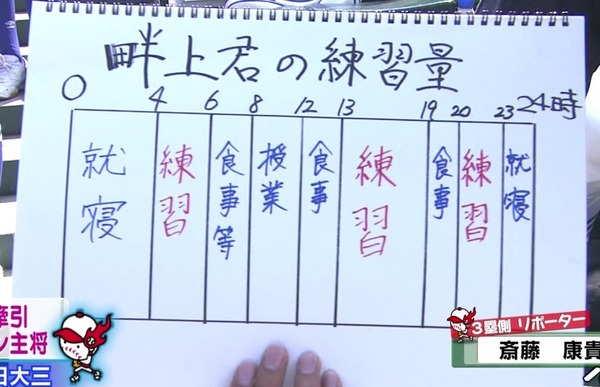 畔上君の練習量
0 4 6 8 12 13 19 20 23 24時
就寝 練習 食事等 授業 食事 練習 食事 練習 就寝
牽引
ン主将
日大三
3塁側 リポーター
斎藤 康貴